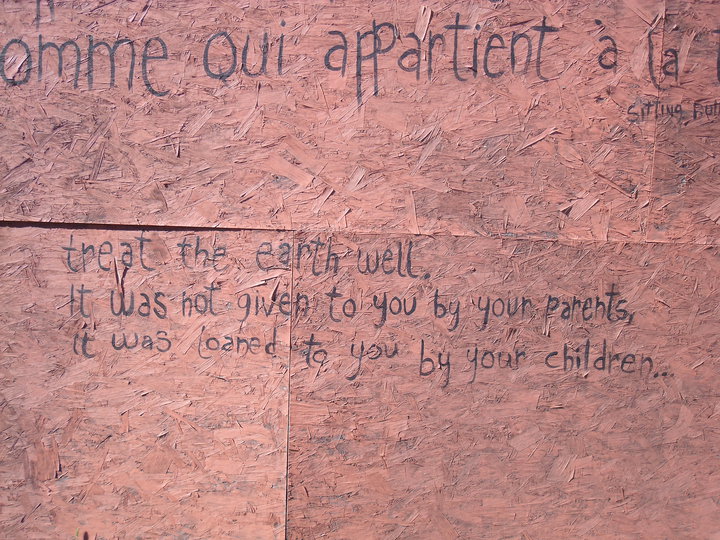 omme qui appartient à la
Sitting Bul
treat the earth well.
It was not given to you by your parents,
it was loaned to you by your children...